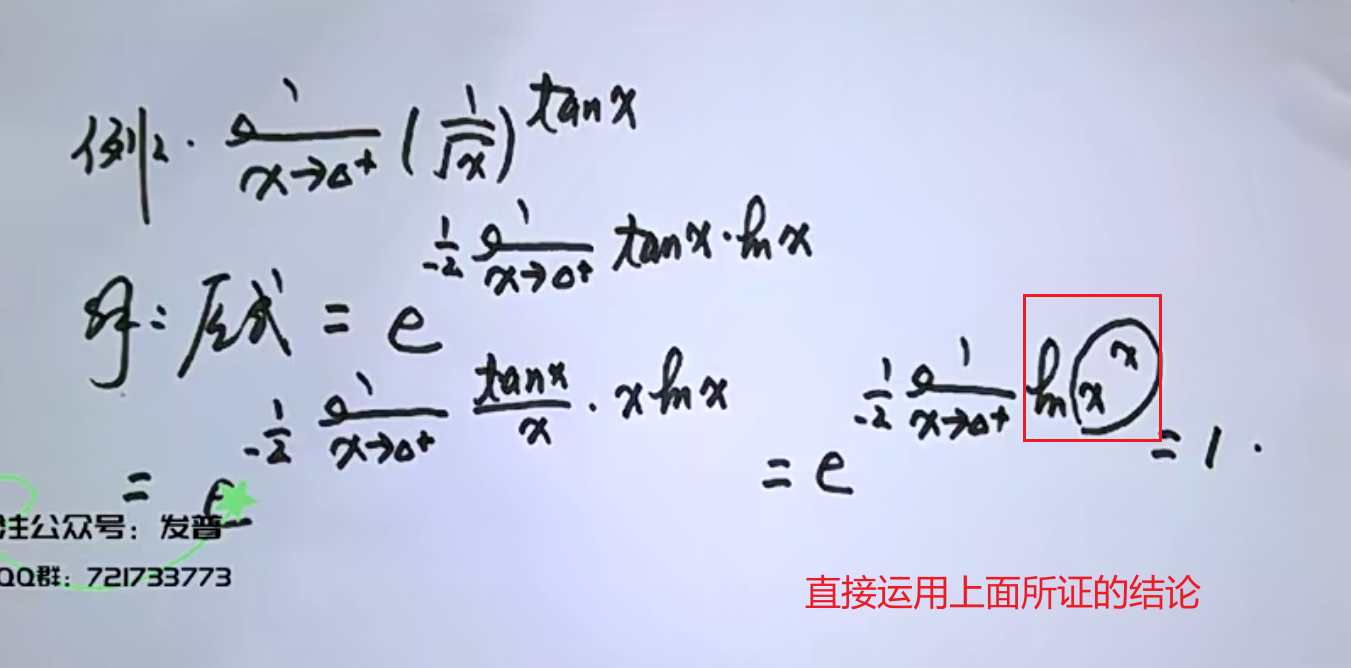 例2. lim x→0⁺ (1/√x)^tanx
解: 原式 = e^(-1/2 lim x→0⁺ tanx·lnx)
= e^(-1/2 lim x→0⁺ tanx/x · xlnx) = e^(-1/2 lim x→0⁺ ln(x^x)) = 1.
注公众号：发普
QQ群：721733773
直接运用上面所证的结论